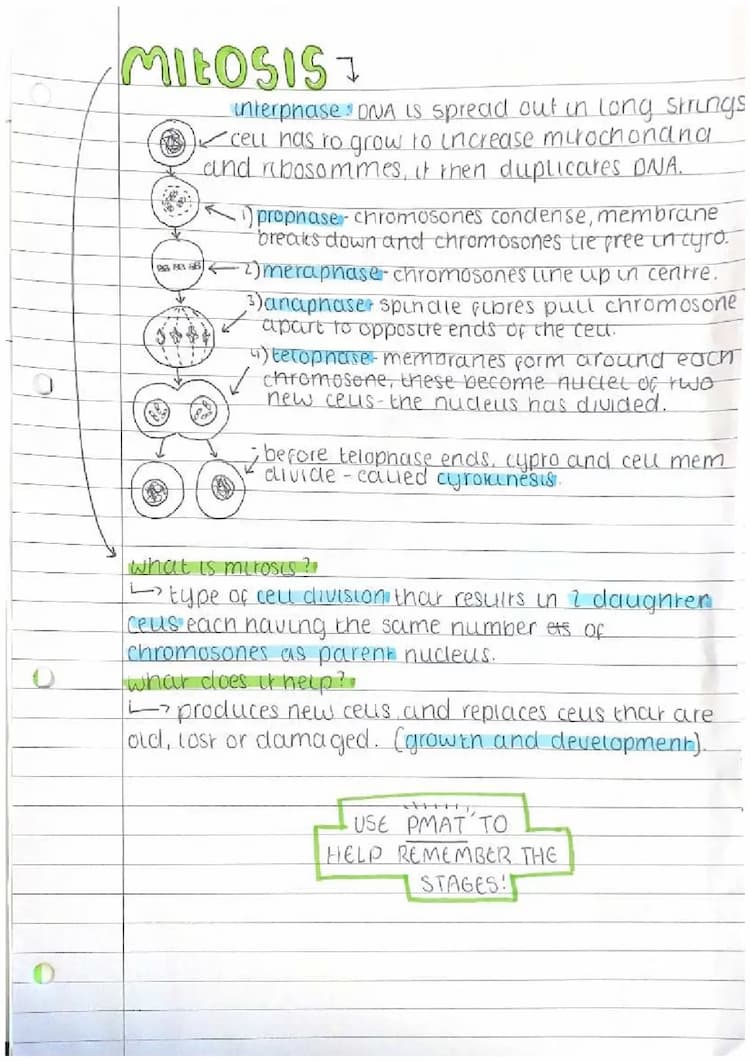 MITOSIS
interphase: DNA is spread out in long strings
cell has to grow to increase mitochondria
and ribosommes, it then duplicates DNA.
1) prophase - chromosones condense, membrane
breaks down and chromosones lie free in cyto.
2) metaphase - chromosones line up in centre.
3) anaphase - spindle fibres pull chromosone
apart to opposite ends of the cell.
4) telophase - membranes form around each
chromosone, these become nuclei of two
new cells - the nucleus has divided.
- before telophase ends, cypto and cell mem
divide - called cytokinesis.
what is mitosis?
↳ type of cell division that results in 2 daughter
cells each having the same number of
chromosones as parent nucleus.
what does it help?
↳ produces new cells and replaces cells that are
old, lost or damaged. (growth and development).
USE PMAT TO
HELP REMEMBER THE
STAGES!